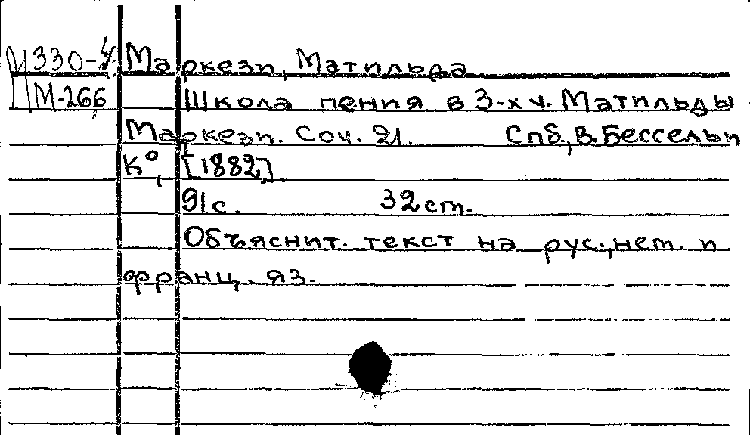 М 330-4 Маркези, Матильда
М-266 Школа пения в 3-х ч. Матильды
Маркези. Соч. 21. Спб, В. Бессель и
К°, [1882].
91с. 32 ст.
Объяснит. текст на рус., нем. и
франц. яз.